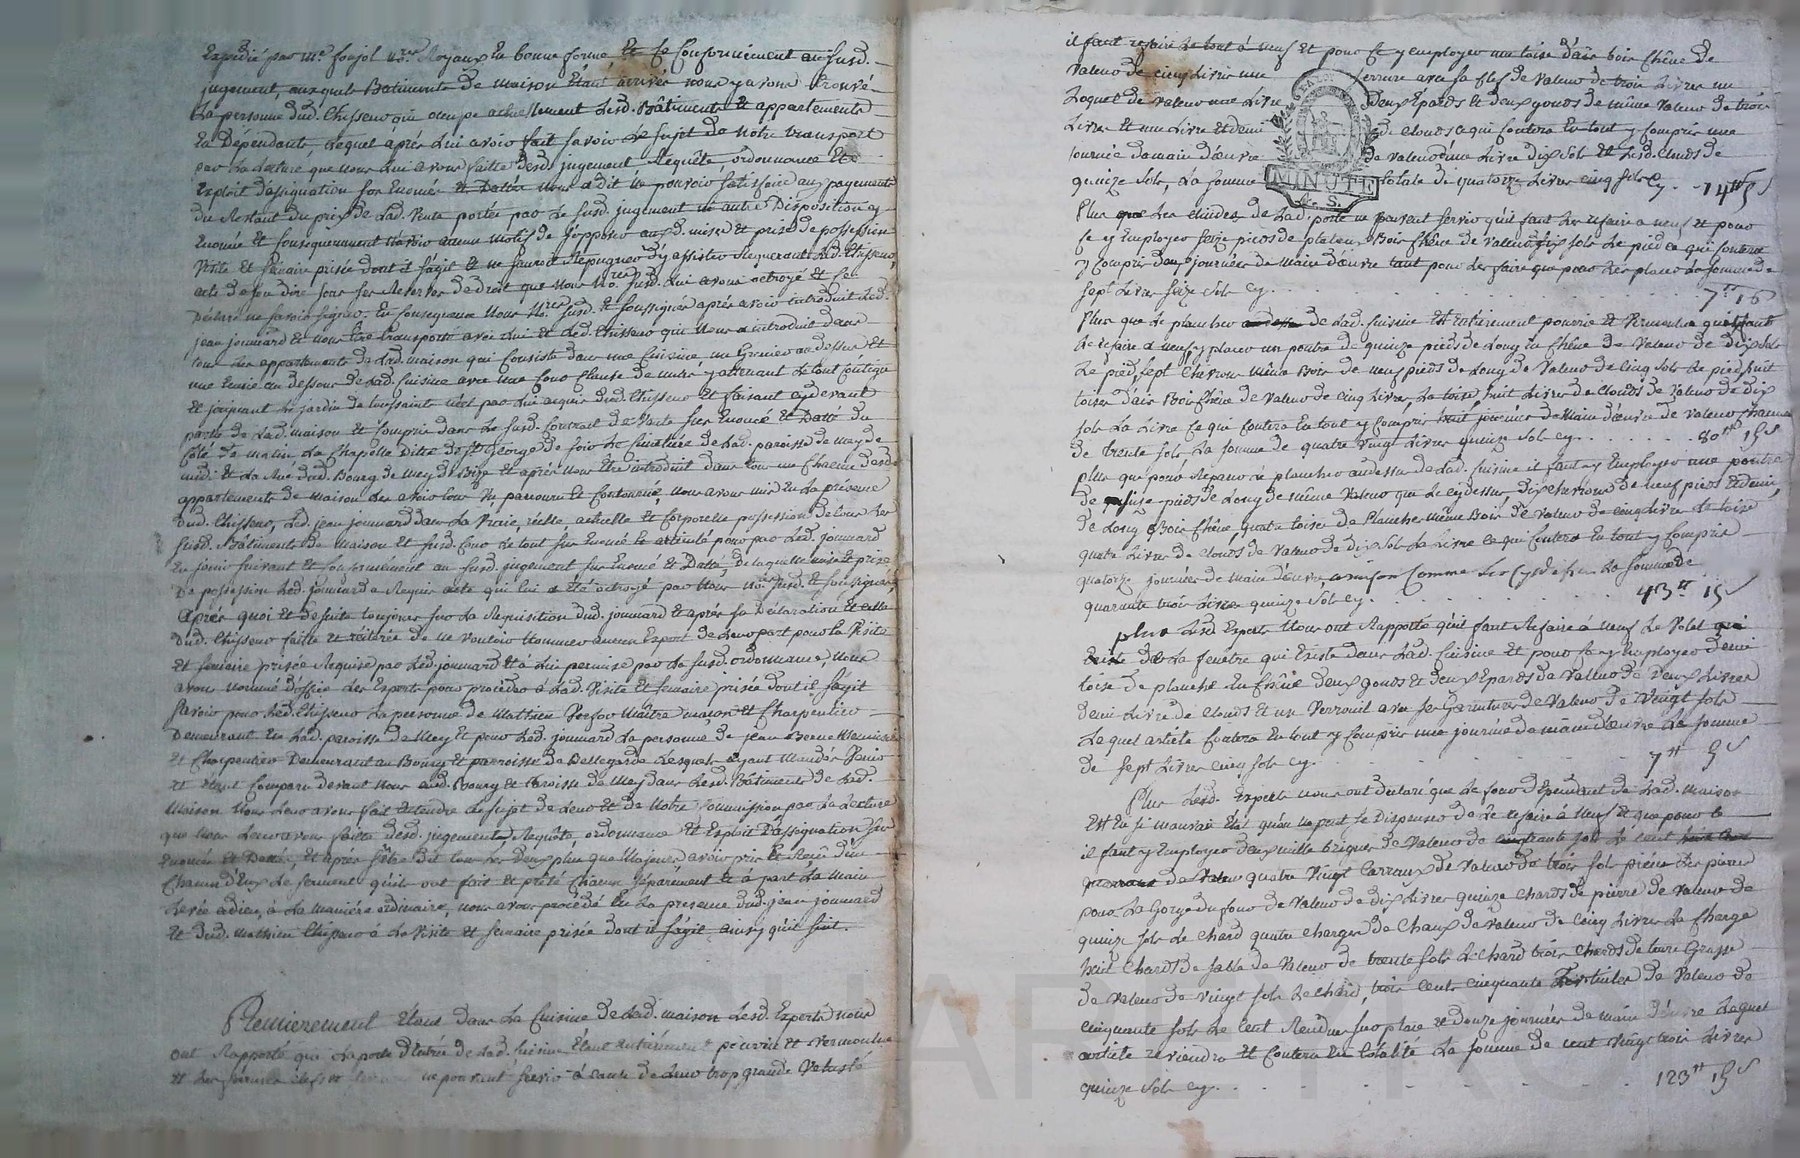 Expedié par Me foujol nre Royaux en bonne forme, Et Ce Conformément au susd.
jugement, auxquels Batiments de maison Etant arrivés nous y avons trouvé
La personne dud. Chisseuo qui occupe actuellement Lesd. Bâtiments Et appartements
En Dépendants, Lequel après Lui avoir fait savoir Le sujet de notre transport
par La Lecture que nous Lui avons faitte desd. jugement Requête, ordonnance Et
Exploit d'assignation sus Enoncés Et Dattés nous a dit ne pouvoir satisfaire aux payements
du Restant du prix de Lad. Vente portée par Le susd. jugement ni autres Dispositions y
Enoncés Et Conséquemment n'avoir aucun motif de s'opposer auxd. mise Et prise de possession
Visite Et semaire prisée dont il s'agit Et ne sauroit Repugner d'y assister Requerant Led. Chisseuo,
acte de son dire sous ses Reserves de droit que Nous No.re susd. Lui avons octroyé Et Ce
Déclaré ne savoir signer. En Conséquence Nous No.re susd. Et soussigné après avoir introduit Led.
jean jounard Et nous Etre transporté avec Lui Et Led. Chisseuo qui Nous a introduit dans
tous Les appartements de Lad. maison qui Consiste dans une Cuisine un Grenier au dessus Et
une Ecurie au dessous de Lad. Cuisine avec une Cour Close de murs y attenant Le tout Contigu
Et joignant Le jardin de toussaints par Lui acquis dud. Chisseuo Et faisant cy devant
partie de Lad. maison Et Compris dans Le susd. Contrat de Vente sus Enoncé Et Datté du
Coté de matin La Chapelle Ditte de St George de soir Le Cimetière de Lad. paroisse de mey de
midi Et La Rue dud. Bourg de mey de Bize Et après Nous Etre introduit dans tous une Chacun desd.
appartements de maison Les avoir tous Vu parcouru Et Contourné, nous avons mis En La présence
dud. Chisseuo, Led. jean jounard dans La Vraie, réelle, actuelle Et Corporelle possession de tous Les
susd. Bâtiments de maison Et susd. Cour Le tout sus Enoncé Et articulé pour par Led. jounard
En jouir suivant Et Conformément au susd. jugement sus Enoncé Et Datté, de laquelle mise Et prise
De possession Led. jounard a Requis acte qui lui a été octroyé par Nous No.re susd. Et soussigné,
Après quoi Et desuite toujours sur La Requisition dud. jounard Et après La Déclaration Et celle
Dud. Chisseuo faitte Et réitérée de ne Vouloir Nommer aucun Expert de Leur part pour la Visite
Et semaire prisée Requise par Led. jounard Et à Lui permise par La susd. ordonnance, Nous
avons nommé d'office Les Experts pour procéder à Lad. Visite Et semaire prisée dont il s'agit
savoir pour Led. Chisseuo La personne de Mathieu Maître maçon Et Charpentier
Demeurant En Lad. paroisse de Mey Et pour Led. jounard La personne de jean Menuisier
Et Charpentier Demeurant au Bourg Et parroisse de Bellegarde Lesquels ayant Mandés Venir
Et étant Comparu devant Nous aud. Bourg Et Paroisse de Mey dans Lesd. Bâtiments de Lad.
Maison Nous Leur avons fait Entendre Le sujet de Leur Et de Notre Commission par La Lecture
que nous Leur avons faitte desd. jugements, Requête, ordonnance Et Exploit d'assignation sus
Enoncés Et Dattés, Et après s'être dit tous Les deux plus que Majeurs avoir pris Et Reçu d'un
Chacun d'Eux Le serment qu'ils ont fait Et prêté Chacun séparément Et à part La Main
Levée à dieu, à La manière ordinaire, nous avons procédé En La presence dud. jean jounard
Et dud. mathieu Chisseuo à La Visite Et semaire prisée dont il s'agit, ainsy qu'il suit.
Premierement Etant dans La Cuisine de Lad. maison Lesd. Experts nous
ont Rapporté que La porte d'Entrée de Lad. Cuisine Etant Entièrement pourrie Et Vermoulue
ne pouvant servir à cause de Leur trop grande Vetusté
il faut refaire Le tout à neuf Et pour Ce y employer une toise d'ais bois Chêne de
Valeur de cinq Livres une serrure avec sa Clef de Valeur de trois Livres un
Loquet de Valeur une Livre Deux Epards Et deux gonds de même Valeur de trois
Livres Et une Livre Et demi de Clouds ce qui Coutera En tout y Compris une
journée de main d'œuvre de Valeur d'une Livre dix sols Et Lesd. Clouds de
quinze sols, La somme totale de quatorze Livres cinq sols Cy. 14tt 5s
MINUTE
Plus que Les de Lad. porte ne Peuvent servir qu'il faut Les refaire a neuf Et pour
Ce y Employer seize pieds de plateau, Bois Chêne de Valeur six sols Le pied ce qui Coutera
y Compris deux journées de Main d'œuvre tant pour Les faire que pour Les placer La somme de
sept Livres seize sols Cy. 7tt 16
Plus que Le plancher de Lad. Cuisine Est Entièrement pourrie Et Vermoulue qu'il faut
Le refaire a neuf y placer un poutre de quinze pieds de Long En Chêne de Valeur de dix sols
Le pied, sept Chevrons même Bois de neuf pieds de Long de Valeur de Cinq sols Le pied, huit
toises d'ais Bois Chêne de Valeur de cinq Livres, La toise, huit Livres de Clouds de Valeur de dix
sols La Livre Ce que Coutera En tout y Compris huit journées de Main d'œuvre de Valeur Chacune
de trente sols La somme de quatre Vingt Livres quinze sols Cy. 80tt 15s
Plus que pour Reparer Le plancher au dessus de Lad. Cuisine il faut y Employer une poutre
de quinze pieds de Long de même Valeur que Le cy dessus, dix chevrons de neuf pieds Et demi,
de Long Bois Chêne, quatre toises de Plancher même Bois de Valeur de cinq Livres La toise
quatre Livres de Clouds de Valeur de dix sols La Livre Ce que Coutera En tout y Compris
quatorze journées de main d'œuvre Comme Les Cy dessus La somme de
quarante trois Livres quinze sols Cy. 43tt 15s
plus Lesd. Experts Nous ont Rapporté qu'il faut Refaire à Neuf Le Volet
de La fenêtre qui Existe dans Lad. Cuisine Et pour Ce y Employer demi
toise de planche En Chêne deux gonds Et deux Epards de Valeur de Deux Livres
demi Livre de Clouds Et un Verrouil avec ses Garnitures de Valeur de Vingt sols
Lequel article Coutera En tout y Compris une journée de main d'œuvre La somme
de sept Livres cinq sols Cy. 7tt 5s
Plus Lesd. Experts nous ont declaré que Le four Dépendant de Lad. maison
Est En si mauvais Etat qu'on ne peut se Dispenser de Le refaire à Neuf Et que pour Ce
il faut y Employer deux mille briques de Valeur de cinquante sols Le Cent
quatre Vingt Carreaux de Valeur de trois sols piece Les pierres
pour La Gorge du four de Valeur de dix Livres quinze Chards de pierre de Valeur de
quinze sols Le Chard quatre Charges de Chaux de Valeur de Cinq Livres La Charge
huit Chards de sable de Valeur de trente sols Le Chard trois Chards de terre Grasse
de Valeur de Vingt sols Le Chard, trois Cents Cinquante tuiles de Valeur de
Cinquante sols Le Cent Rendues sur place Et douze journées de main d'œuvre Lequel
article reviendra Et Coutera En totalité La somme de cent Vingt trois Livres
quinze sols Cy. 123tt 15s